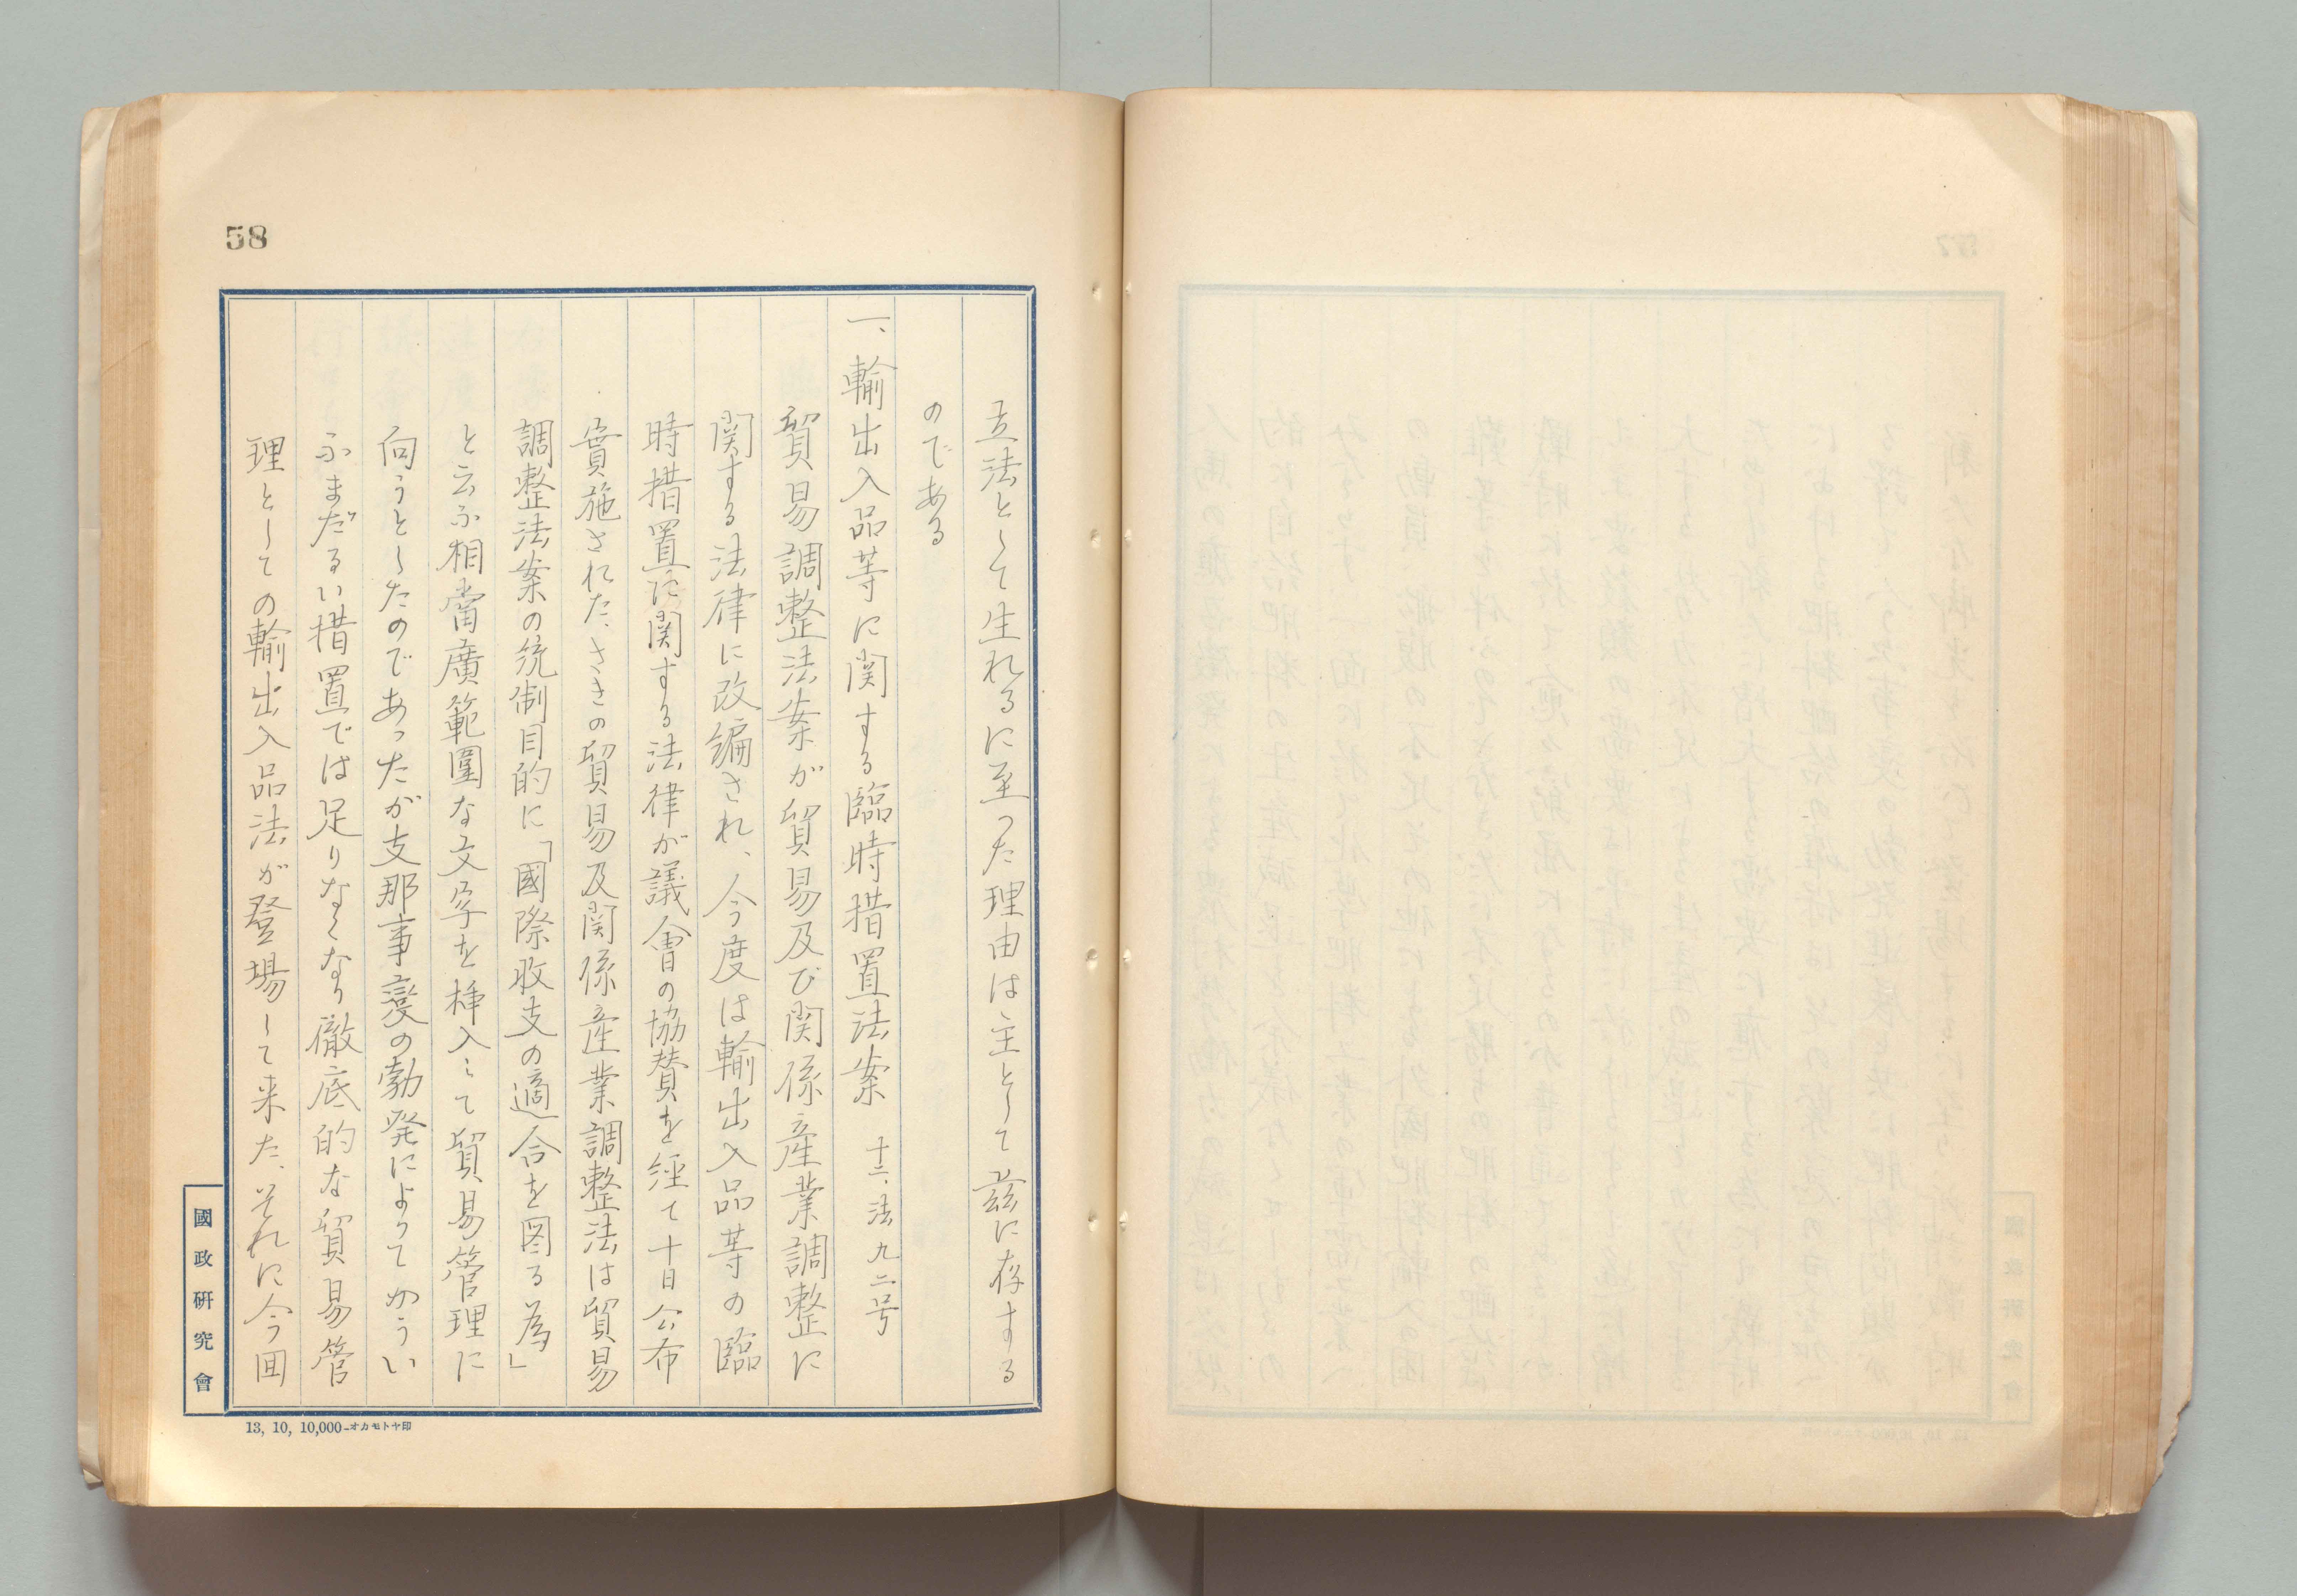 58
立法として生れるに至った理由は主として茲に存する
のである
一、輸出入品等に関する臨時措置法案 十二、法九二号
貿易調整法案が貿易及び関係産業調整に
関する法律に改編され、今度は輸出入品等の臨
時措置に関する法律が議會の協賛を経て十日公布
實施された、さきの貿易及関係産業調整法は貿易
調整法案の統制目的に「國際收支の適合を図る為」
と云ふ相當廣範圍な文字を挿入して貿易管理に
向うとしたのであったが支那事変の勃発によってかうい
ふまだるい措置では足りなくなり徹底的な貿易管
理としての輸出入品法が登場して来た、それに今回
國政研究會
13, 10, 10,000-オカモトヤ印